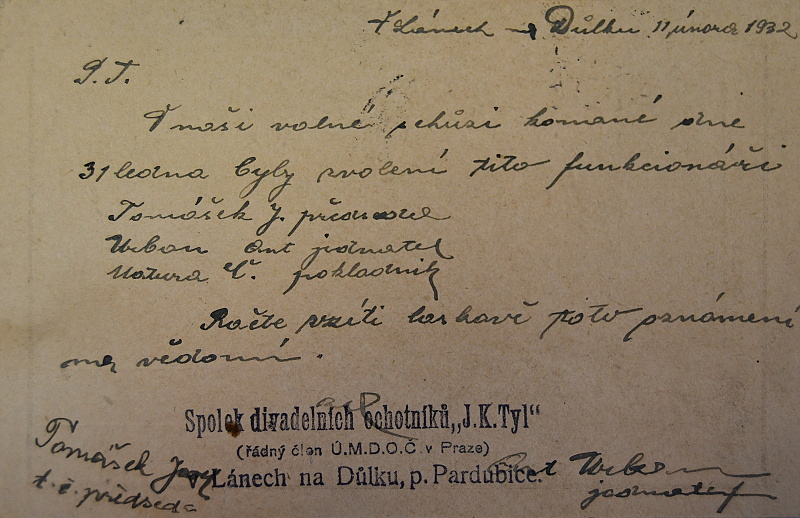 V Lánech na Důlku 11 února 1932
P. T.
V naší valné schůzi konané dne
31 ledna byly zvoleni tito funkcionáři
Tomášek J. předseda
Urban Ant jednatel
Matura Č. pokladník
Račte vzíti laskavě toto oznámení
na vědomí.
Spolek divadelních ochotníků „J.K.Tyl"
(řádný člen Ú.M.D.O.Č. v Praze)
v Lánech na Důlku, p. Pardubice.
Tomášek
t. č. předseda
Ant Urban
jednatel